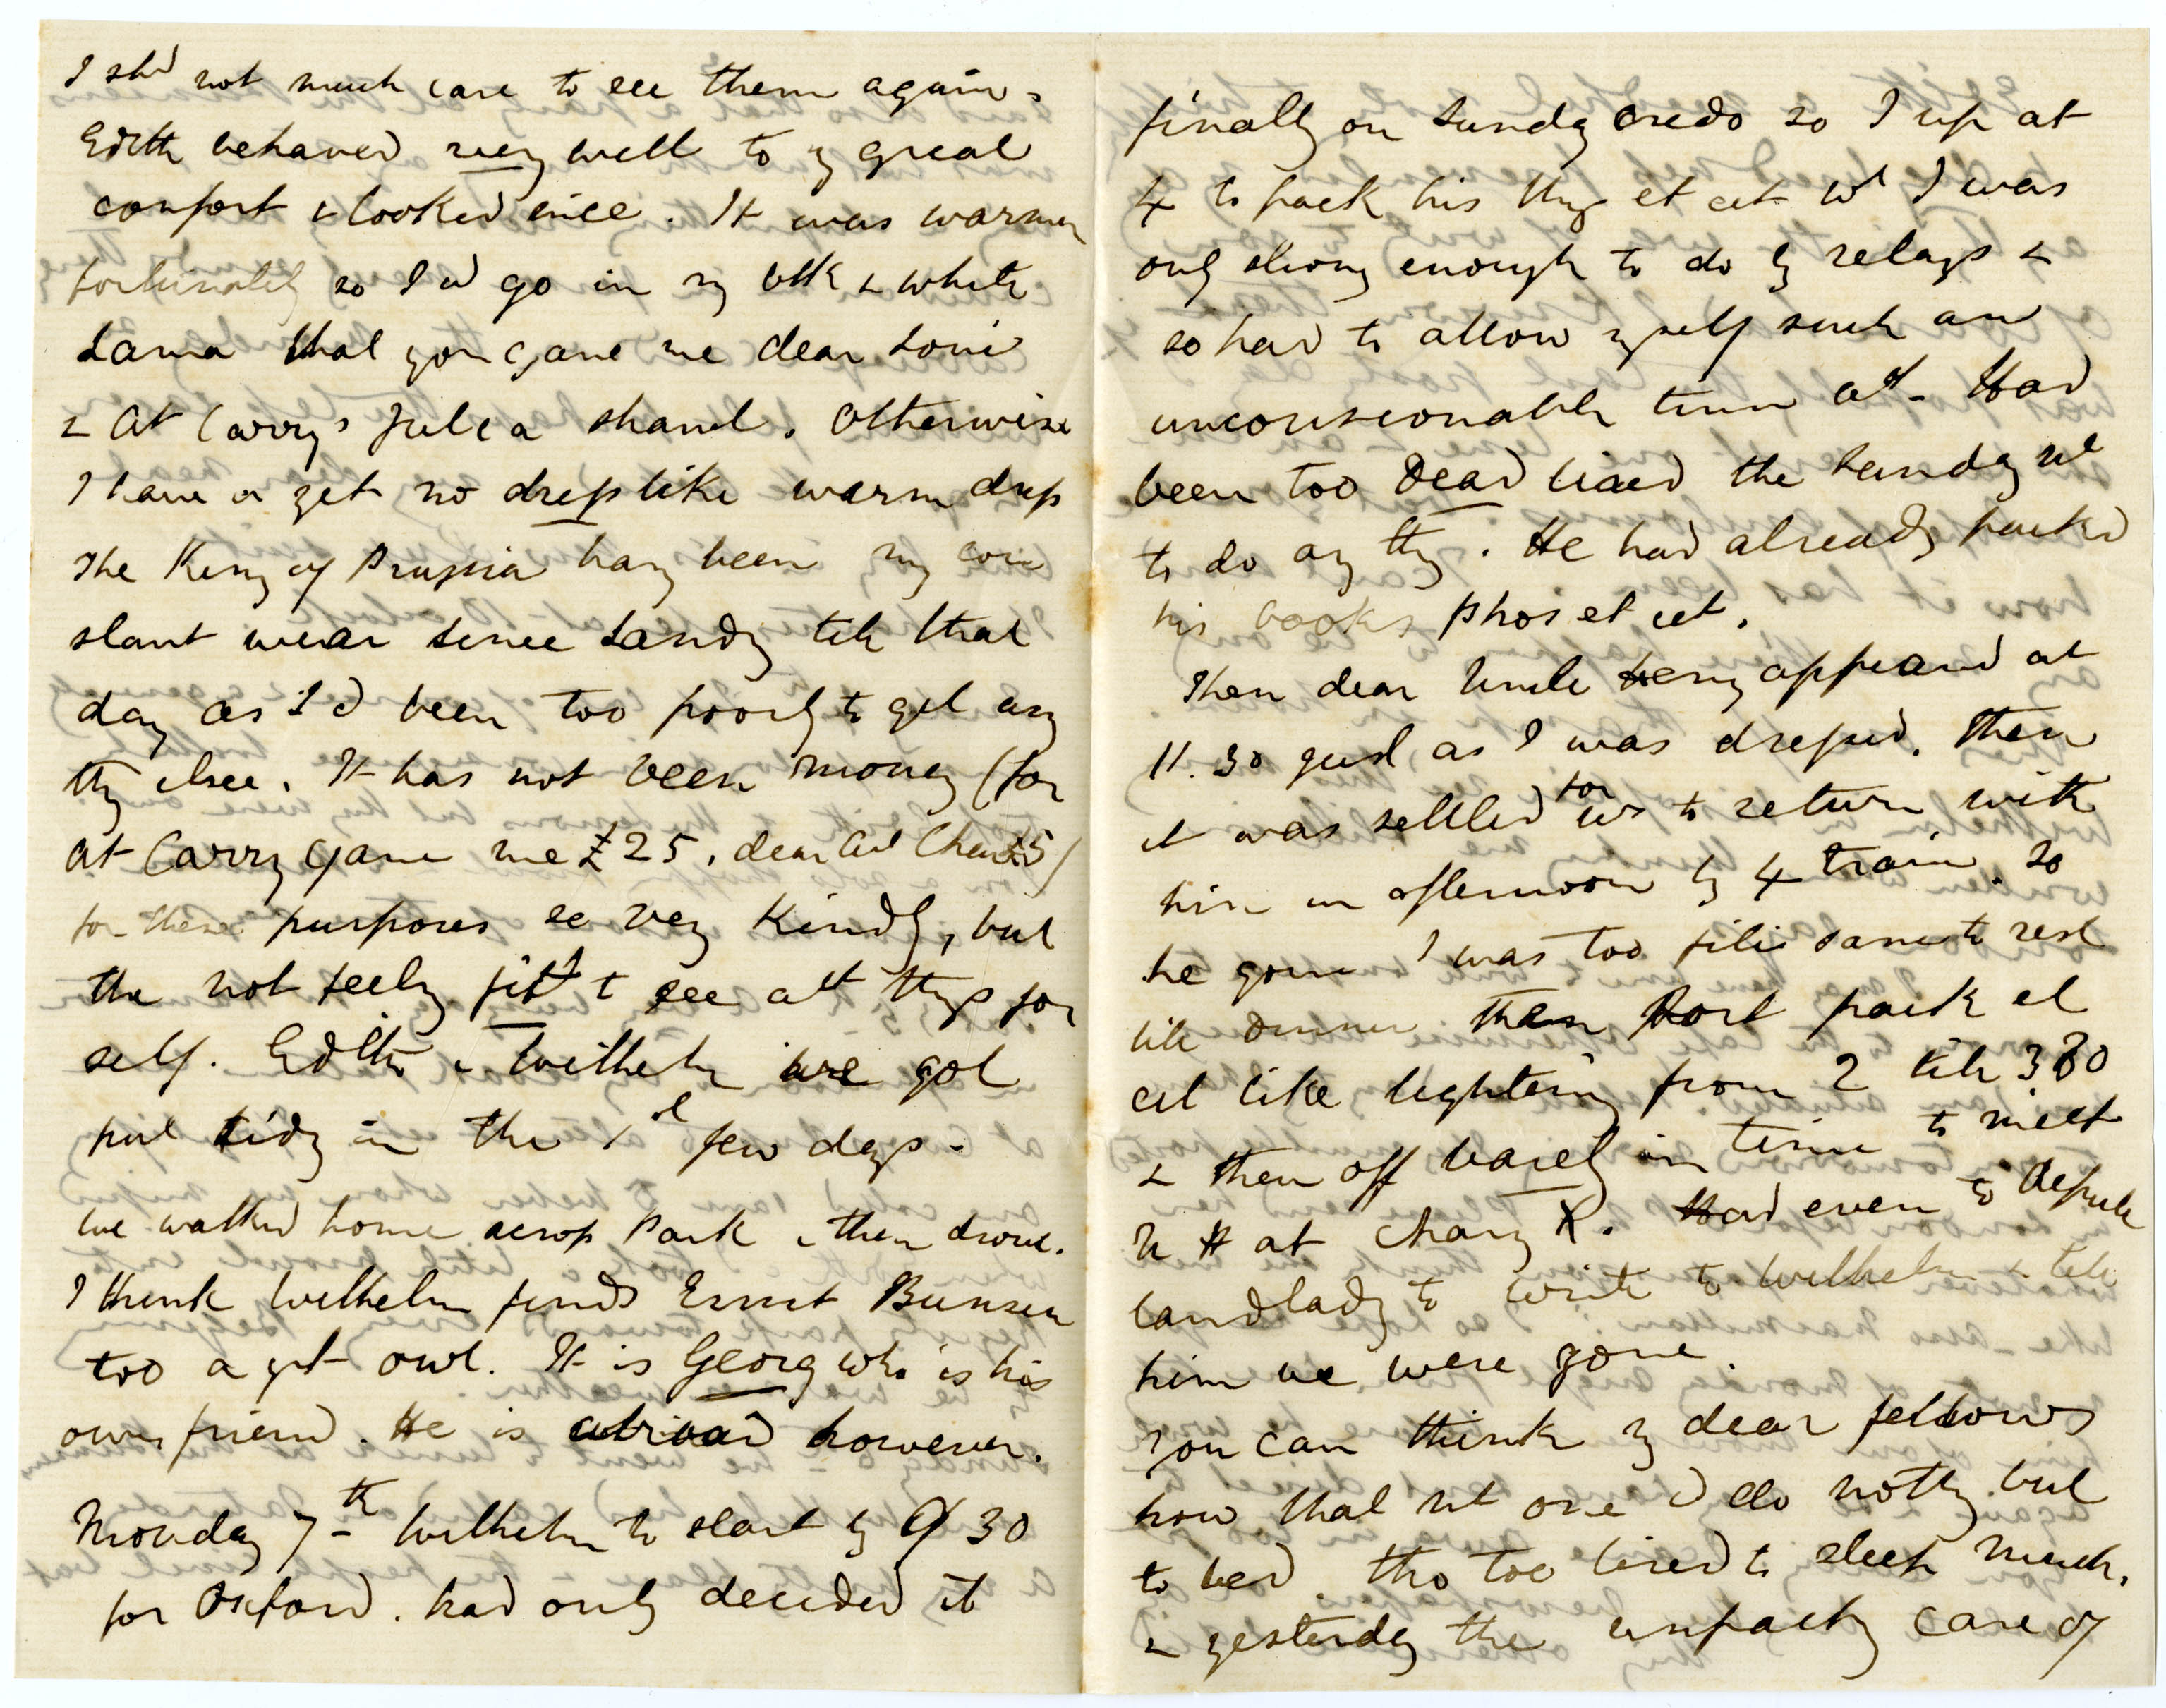 I shd not much care to see them again.
Edith behaved very well to my great
comfort & looked nice. It was warmer
fortunately so I cd go in my blk & white
Lama that you gave me dear Loui
& At Carry's Julia shawl. Otherwise
I have as yet no dress like warm dress
The King of Prussia havg been my con
stant wear since Sandy till that
day as I'd been too poorly to get any
thg else. It has not been money (for
At Carry gave me £25, dear £5)
for these purposes so very kindly, but
the not feelg fit t see abt thgs for
self. Edith & Wilhelm are got
put tidy in the 1st few days.
We walked home across Park & then drove.
I think Wilhelm finds Ernst Bunsen
too a gt owl. It is Georg who is his
own friend. He is abroad however.
Monday 7th Wilhelm to start by 9 30
for Oxford. had only decided it
finally on Sunday so I up at
4 to pack his thgs et cet wh I was
only strong enough to do by relays &
so had to allow myself such an
unconscionable time at it. Had
been too dead tired the Sunday nt
to do any thg. He had already packd
his books phos et cet.
Then dear Uncle Heny appeared at
11.30 just as I was dressed. Then
it was settled for us to return with
him in afternoon by 4 train. So
he gone I was too to rest
till dinner then Port pack et
cet like lightening from 2 till 3 30
& then off barely in time to meet
U H at Charg X. Had even to depute
landlady to write to Wilhelm & tell
him we were gone.
You can think my dear fellows
how that nt one cd do nothg but
to bed. tho too tired to sleep much,
& yesterday the unpackg case of